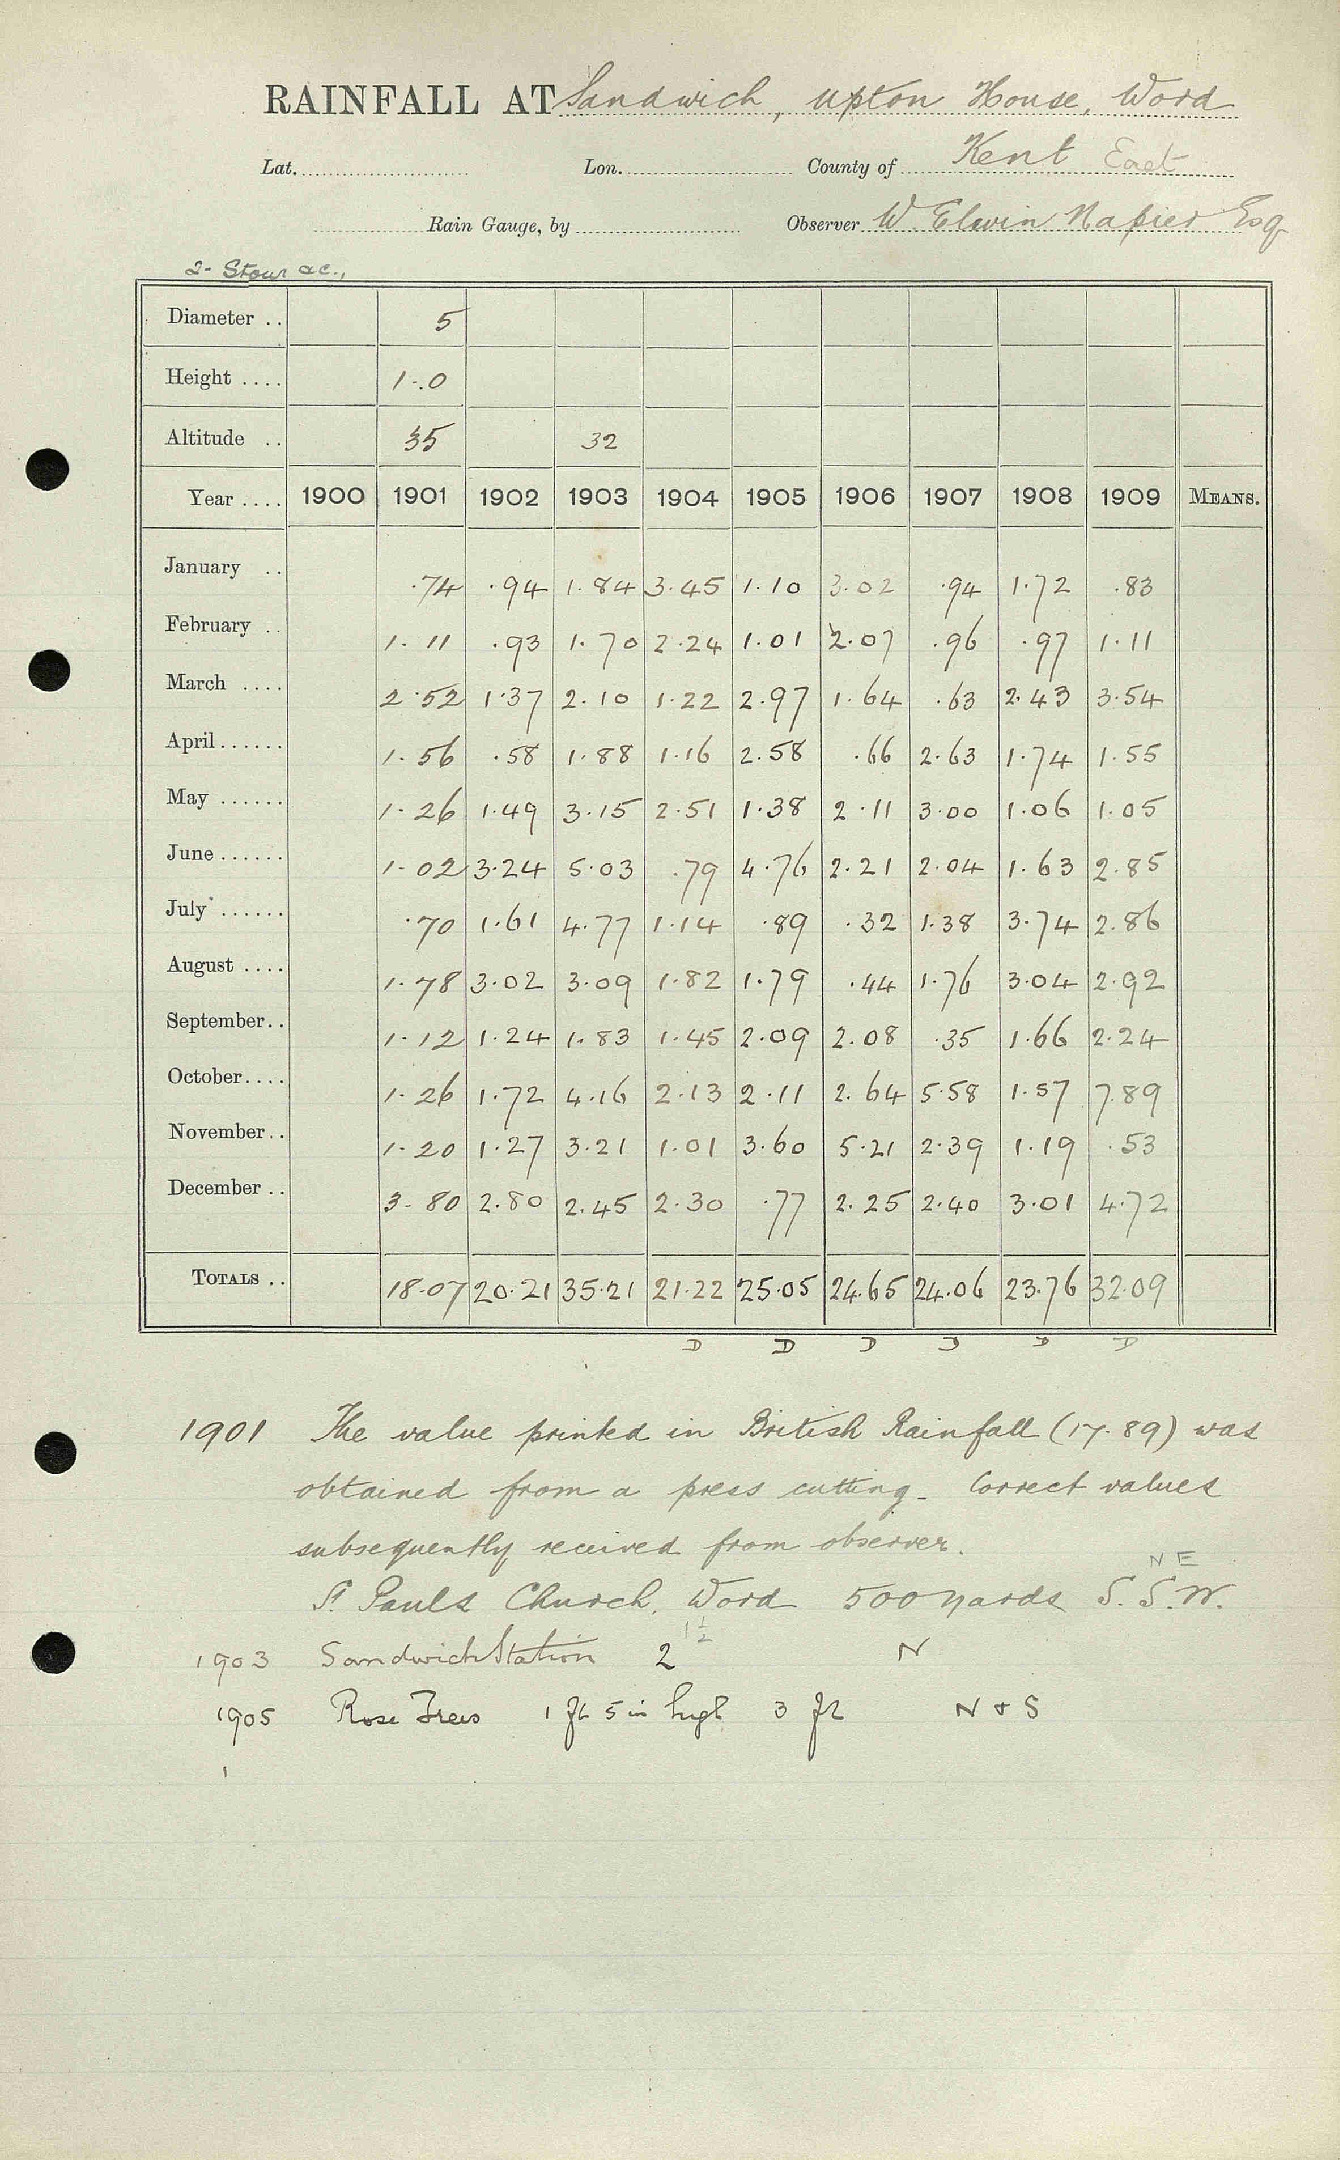 RAINFALL AT Sandwich, Upton House, Word
Lat. Lon. County of Kent East
Rain Gauge, by Observer W Elwin Napier Esq
2- Stour &c.,
Diameter .. 5
Height .... 1-.0
Altitude .. 35 32
Year .... 1900 1901 1902 1903 1904 1905 1906 1907 1908 1909 MEANS.
January .. .74 .94 1.84 3.45 1.10 3.02 .94 1.72 .83
February .. 1.11 .93 1.70 2.24 1.01 2.07 .96 .97 1.11
March .... 2.52 1.37 2.10 1.22 2.97 1.64 .63 2.43 3.54
April...... 1.56 .58 1.88 1.16 2.58 .66 2.63 1.74 1.55
May ...... 1.26 1.49 3.15 2.51 1.38 2.11 3.00 1.06 1.05
June...... 1.02 3.24 5.03 .79 4.76 2.21 2.04 1.63 2.85
July ...... .70 1.61 4.77 1.14 .89 .32 1.38 3.74 2.86
August .... 1.78 3.02 3.09 1.82 1.79 .44 1.76 3.04 2.92
September.. 1.12 1.24 1.83 1.45 2.09 2.08 .35 1.66 2.24
October.... 1.26 1.72 4.16 2.13 2.11 2.64 5.58 1.57 7.89
November.. 1.20 1.27 3.21 1.01 3.60 5.21 2.39 1.19 .53
December .. 3.80 2.80 2.45 2.30 .77 2.25 2.40 3.01 4.72
TOTALS .. 18.07 20.21 35.21 21.22 25.05 24.65 24.06 23.76 32.09
D D D D D D
1901 The value printed in British Rainfall (17.89) was
obtained from a press cutting. Correct values
subsequently received from observer.
N E
St. Pauls Church, Word 500 yards S. S. W.
1½
1903 Sandwich Station 2 N
1905 Rose Trees 1 ft 5 in high 3 ft N & S